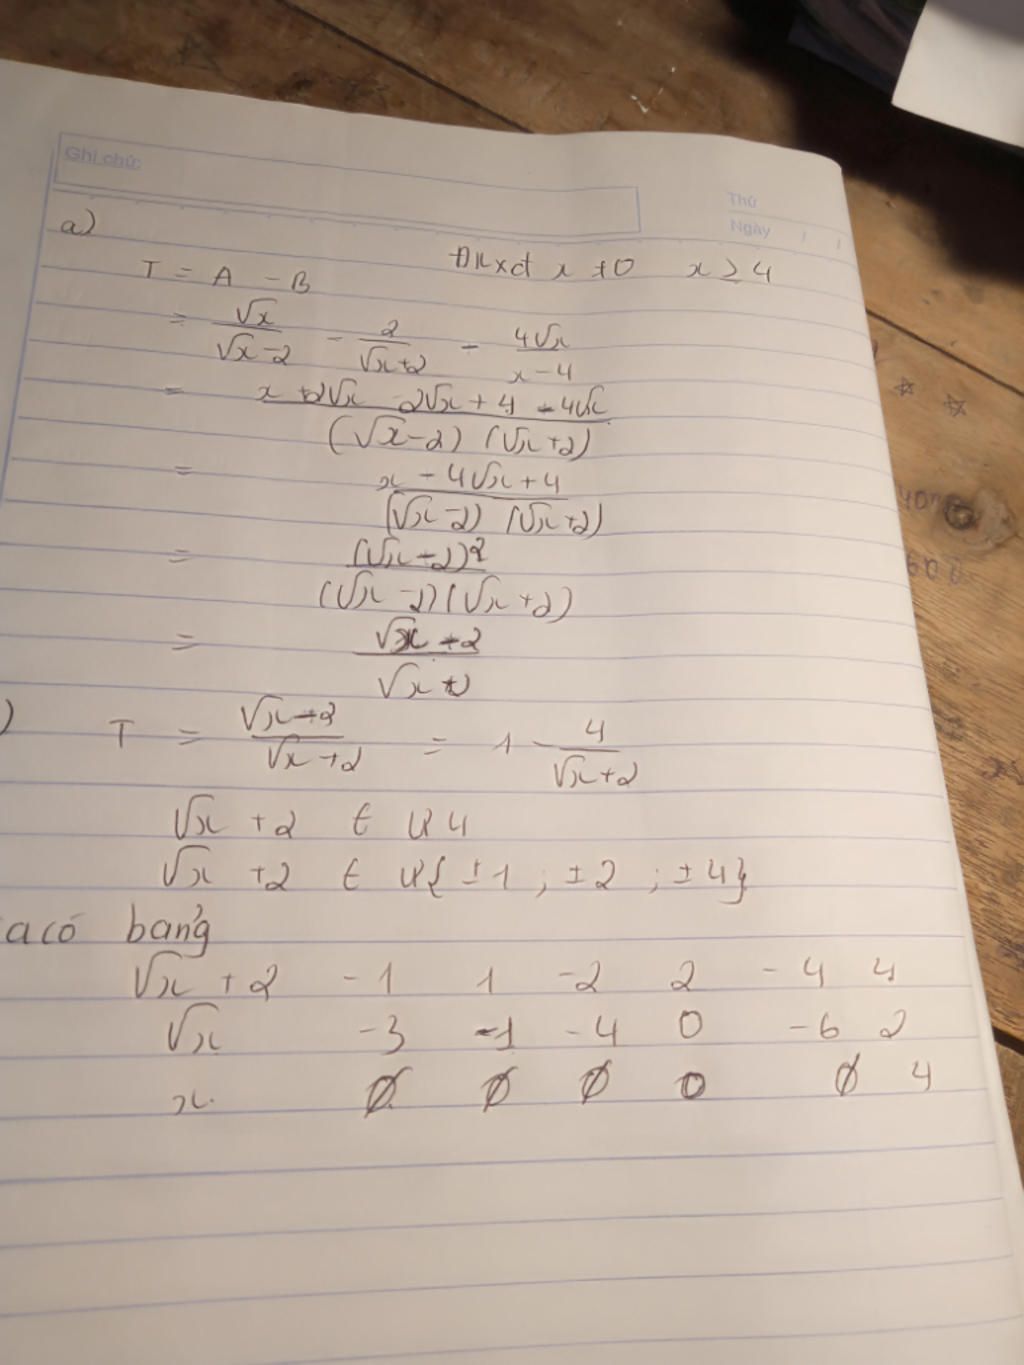 Ghi chú:
Thứ
Ngày / /
a)
T = A - B ĐKXĐ x ≠ 0 x ≥ 4
= √x/(√x-2) - 2/(√x+2) - 4√x/(x-4)
= (x+2√x -2√x+4 -4√x)/((√x-2)(√x+2))
= (x-4√x+4)/((√x-2)(√x+2))
= (√x-2)²/((√x-2)(√x+2))
= (√x-2)/(√x+2)
) T = (√x-2)/(√x+2) = 1 - 4/(√x+2)
√x +2 ∈ Ư 4
√x +2 ∈ Ư{±1 ; ±2 ; ±4}
a có bảng
√x + 2 -1 1 -2 2 -4 4
√x -3 -1 -4 0 -6 2
x ∅ ∅ ∅ 0 ∅ 4